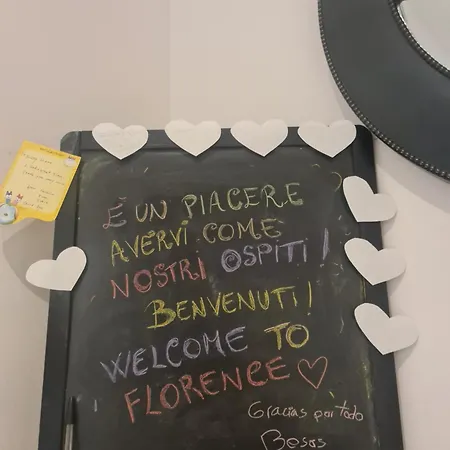 È UN PIACERE
AVERVI COME
NOSTRI OSPITI!
BENVENUTI!
WELCOME TO
FLORENCE
Gracias por todo
Besos